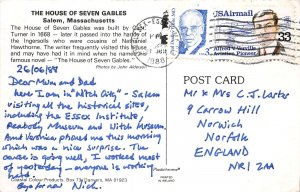 THE HOUSE OF SEVEN GABLES
Salem, Massachusetts
The House of Seven Gables was built by Capt.
Turner in 1668 — later it passed into the hands of
the Ingersols who were cousins of Nathaniel
Hawthorne. The writer frequently visited the house
and may have had it in mind when he named his
famous novel — "The House of Seven Gables."
Photos by John
26/06/89
Dear Mum and Dad
here I am in "Witch City" - Salem
visiting all the historical sites,
including the Essex Institute,
Peabody Museum and Witch Museum.
Aunt Veronica phoned me this morning
which was a nice surprise. The
course is going well, I worked most
of yesterday - everyone is working
hard
Bye for now Nick.
Coastal Colour Products, Box 73, Danvers, MA 01923
USAirmail
33
Alfred V. Verville
Aviation Pioneer
POST CARD
Mr & Mrs C.J. Carter
9 Carrow Hill
Norwich
Norfolk
ENGLAND
NR1 2AA
PRINTED
IN IRELAND